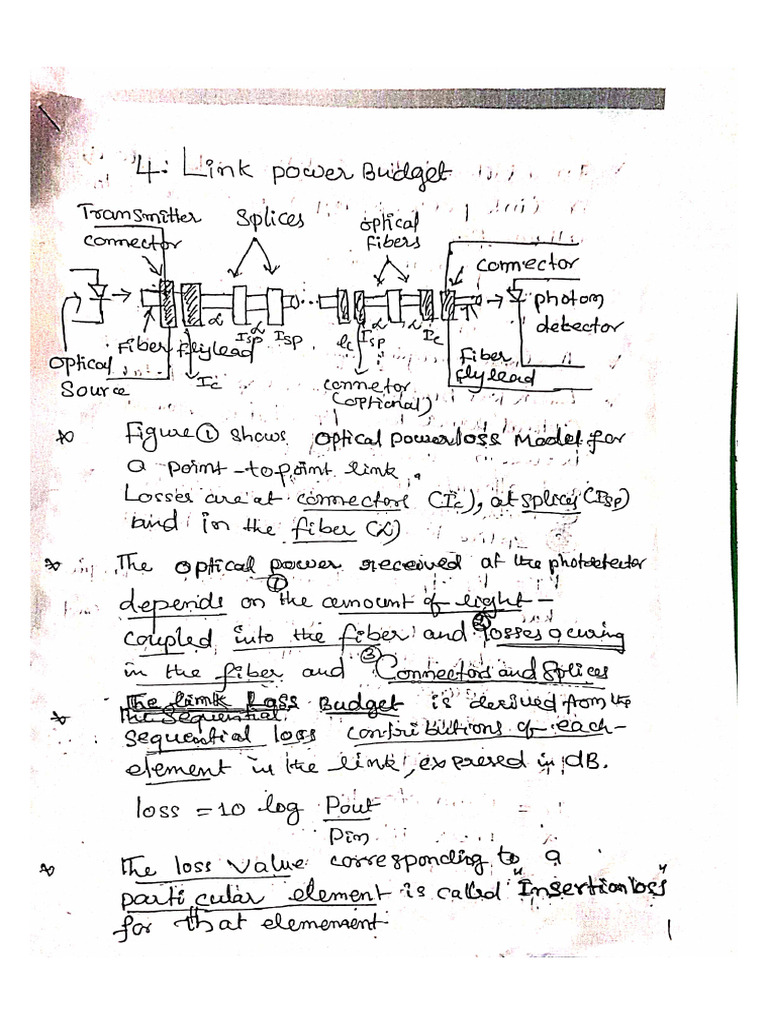 4: Link power Budget
Transmitter
connector
Splices
optical
fibers
connector
photon
detector
α Isp α Isp lc Isp α α Ic
Fiber flylead
Ic
optical
Source
connetor
(optional)
Fiber
flylead
Figure ① shows optical power loss Model for
a point-to point link.
Losses are at connectors (Ic), at splices (Isp)
and in the fiber (α)
The optical power received at the photodetector
①
depends on the amount of light-
②
coupled into the fiber and losses occuring
③
in the fiber and Connectors and Splices
The link Loss Budget is derived from the
The sequential
sequential loss contributions of each-
element in the link, expresed in dB.
loss = 10 log Pout
Pin
The loss value corresponding to a
particular element is called "Insertion loss"
for that elemement
1